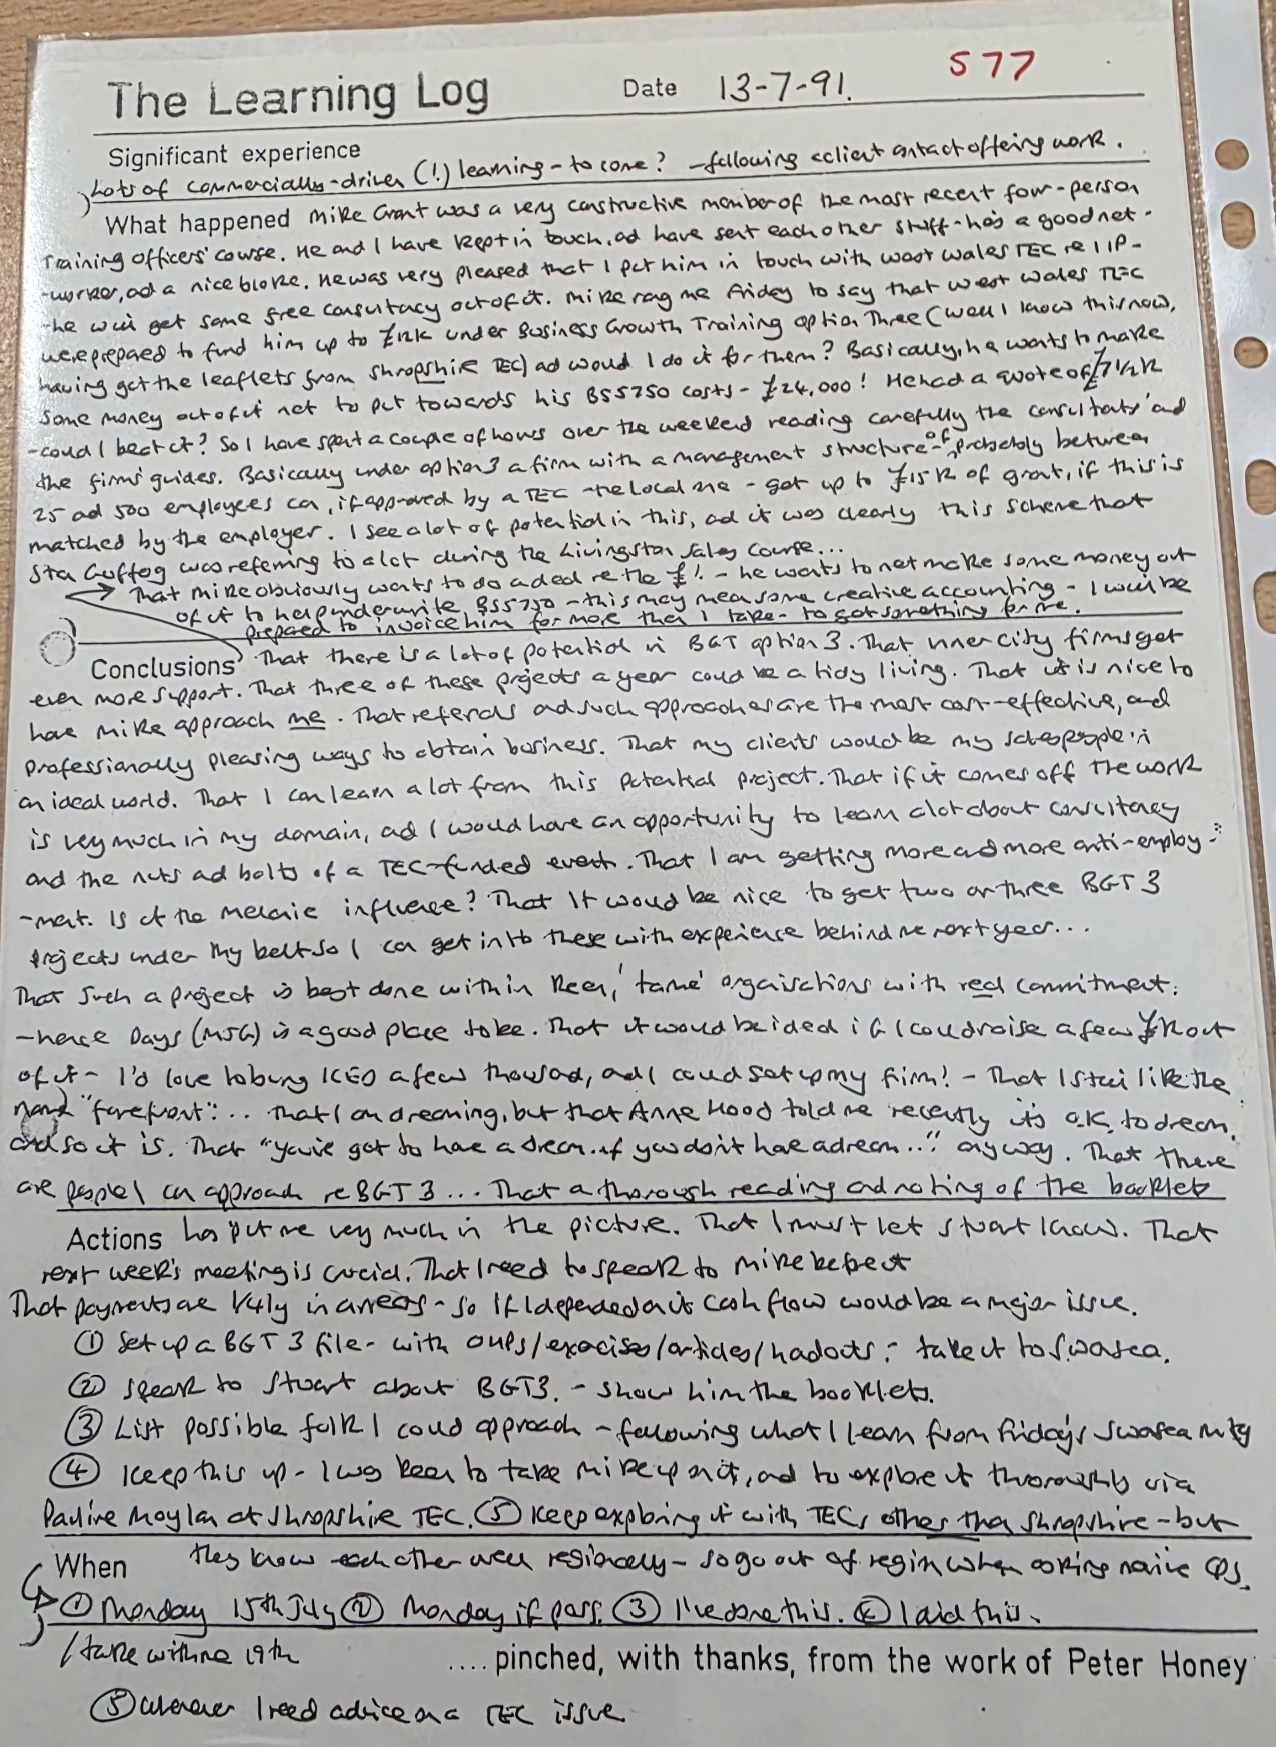 The Learning Log Date 13-7-91. 577
Significant experience
Lots of commercially-driven (!) learning - to come? - following a client contact offering work.
What happened Mike Grant was a very constructive member of the most recent four-person
Training officers' course. He and I have kept in touch, ad have sent each other stuff - he's a good net-
-worker, ad a nice bloke. He was very pleased that I put him in touch with West Wales TEC re IIP -
-he will get some free consultacy out of it. Mike rang me Friday to say that West Wales TEC
were prepared to fund him up to £12k under Business Growth Training option Three (well I know this now,
having got the leaflets from Shropshire TEC) ad would I do it for them? Basically, he wants to make
some money out of it net to put towards his BS5750 costs - £24,000! He had a quote of £7½k
- could I beat it? So I have spent a couple of hours over the weekend reading carefully the consultants' and
the firms' guides. Basically under option 3 a firm with a management structure - of probably between
25 ad 500 employees can, if approved by a TEC - the local one - get up to £15k of grant, if this is
matched by the employer. I see a lot of potential in this, ad it was clearly this scheme that
Stan Guffog was referring to a lot during the Livingston Sales Course...
That Mike obviously wants to do a deal re the £! - he wants to net make some money out
of it to help underwrite BS5750 - this may mean some creative accounting - I will be
prepared to invoice him for more than I take - to get something for me.
Conclusions That there is a lot of potential in BGT option 3. That inner city firms get
even more support. That three of these projects a year could be a tidy living. That it is nice to
have Mike approach me. That referrals ad such approaches are the most cost-effective, and
professionally pleasing ways to obtain business. That my clients would be my salespeople in
an ideal world. That I can learn a lot from this potential project. That if it comes off the work
is very much in my domain, ad I would have an opportunity to learn a lot about consultancy
and the nuts ad bolts of a TEC-funded event. That I am getting more ad more anti-employ-
-ment. Is it the Melanie influence? That it would be nice to get two or three BGT 3
projects under my belt so I can get into these with experience behind me next year...
That such a project is best done within keen, 'tame' organisations with real commitment:
- hence Days (MSG) is a good place to be. That it would be ideal if I could raise a few £k out
of it - I'd love to bung ICEO a few thousad, ad I could set up my firm! - That I still like the
name "forefront"... That I am dreaming, but that Anne Hood told me recently it's O.K. to dream,
and so it is. That "you've got to have a dream.. if you don't have a dream..." anyway. That there
are people I can approach re BGT 3... That a thorough reading and noting of the booklets
Actions has put me very much in the picture. That I must let Stuart know. That
next week's meeting is crucial. That I need to speak to Mike before it
That payments are 1/4ly in arrears - so if I depended on it cash flow would be a major issue.
① Set up a BGT 3 file - with OHPs/exercises/articles/hadouts - take it to Swansea.
② Speak to Stuart about BGT3. - show him the booklets.
③ List possible folk I could approach - following what I learn from Friday's Swansea mtg
④ Keep this up - I was keen to take Mike up on it, ad to explore it thoroughly via
Pauline Moylan at Shropshire TEC. ⑤ Keep exploring it with TECs other than Shropshire - but
When they know each other well regionally - so go out of region when asking naive Qs.
① Monday 15th July ② Monday if poss. ③ I've done this. ④ I did this.
/ take with me 19th
.... pinched, with thanks, from the work of Peter Honey
⑤ Whenever I need advice on a TEC issue.